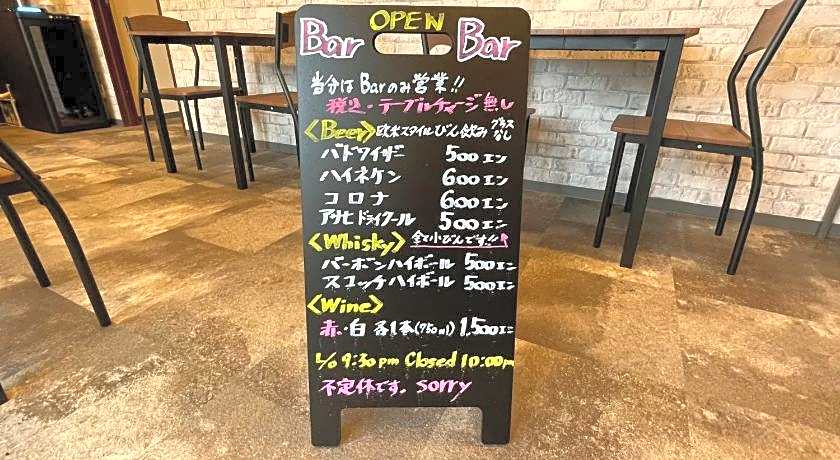 OPEN
Bar Bar
当分は Barのみ営業!!
税込・テーブルチャージ無し
<Beer> 欧米スタイルびん飲み グラスなし
バドワイザー 500エン
ハイネケン 600エン
コロナ 600エン
アサヒドライクール 500エン
<Whisky> 全て小びんです!!
バーボンハイボール 500エン
スコッチハイボール 500エン
<Wine>
赤・白 各1本(750ml) 1,500エン
L/o 9:30pm Closed 10:00pm
不定休です。sorry